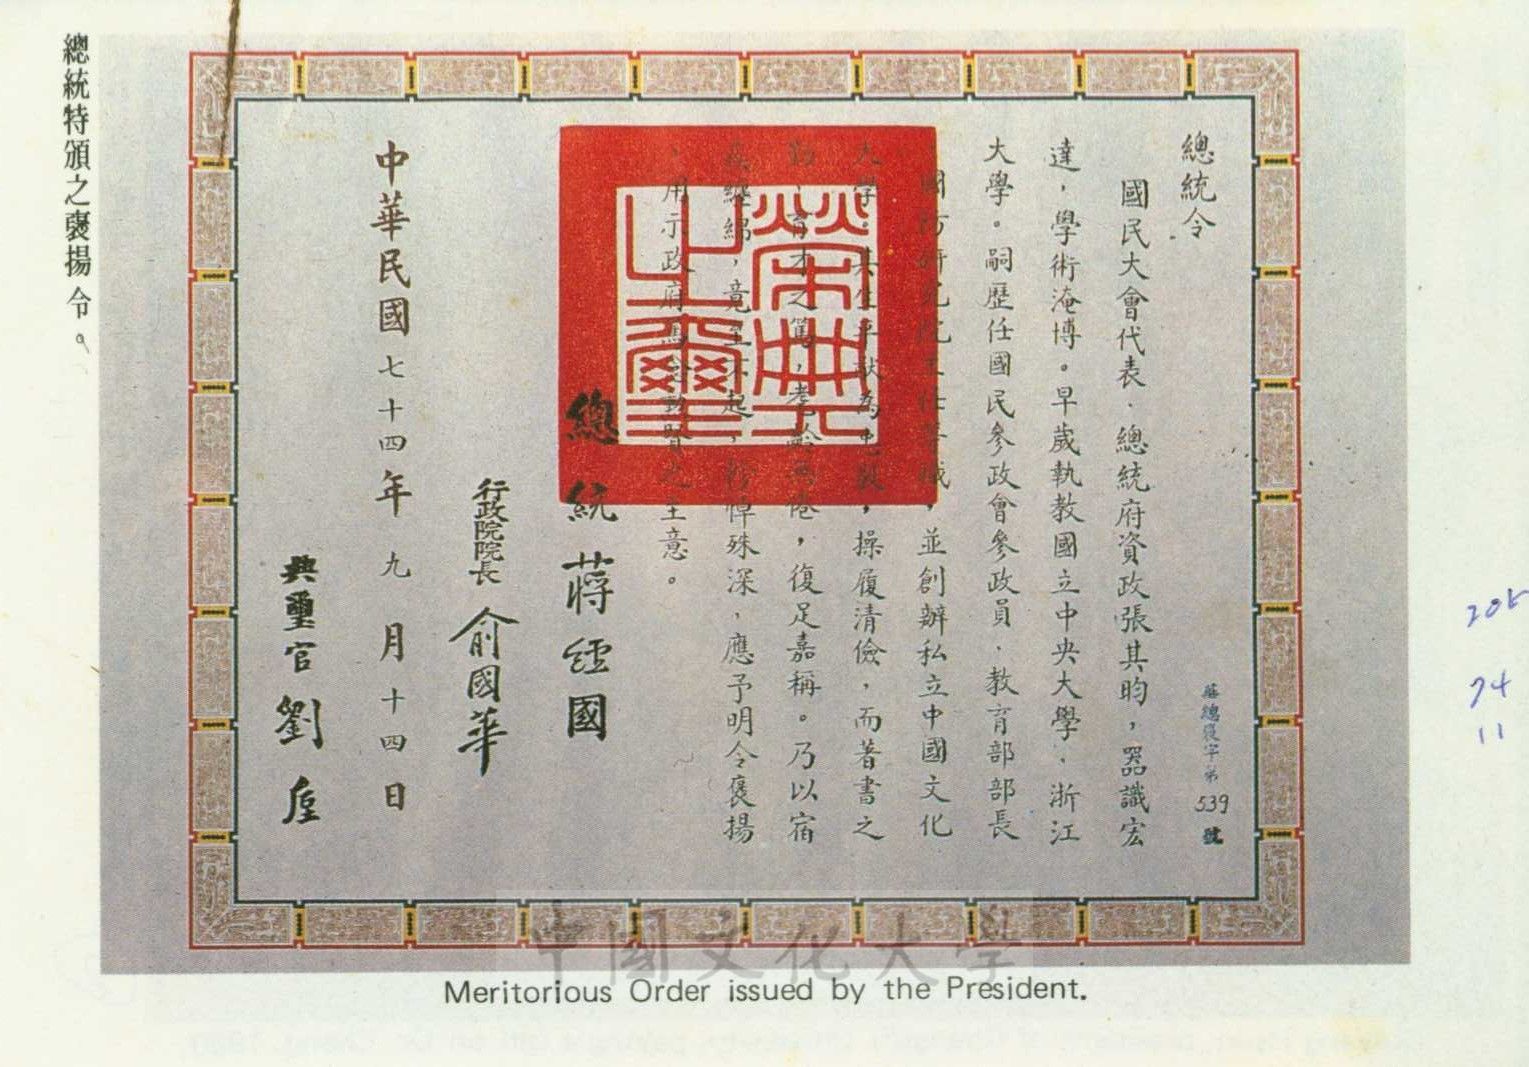 總統特頒之褒揚令。
總統令
華總褒字第539號
國民大會代表、總統府資政張其昀，器識宏
達，學術淹博。早歲執教國立中央大學、浙江
大學。嗣歷任國民參政會參政員、教育部部長
、國防研究院主任等職，並創辦私立中國文化
大學。其生平猷為忠毅，操履清儉，而著書之
勤，育才之篤，耄齡無倦，復足嘉稱。乃以宿
疾纏綿，竟至不起，軫悼殊深，應予明令褒揚
，用示政府篤念勳賢之至意。
榮典之璽
總統 蔣經國
行政院院長 俞國華
中華民國七十四年九月十四日
典璽官 劉垕
中國文化大學
Meritorious Order issued by the President.
74
11